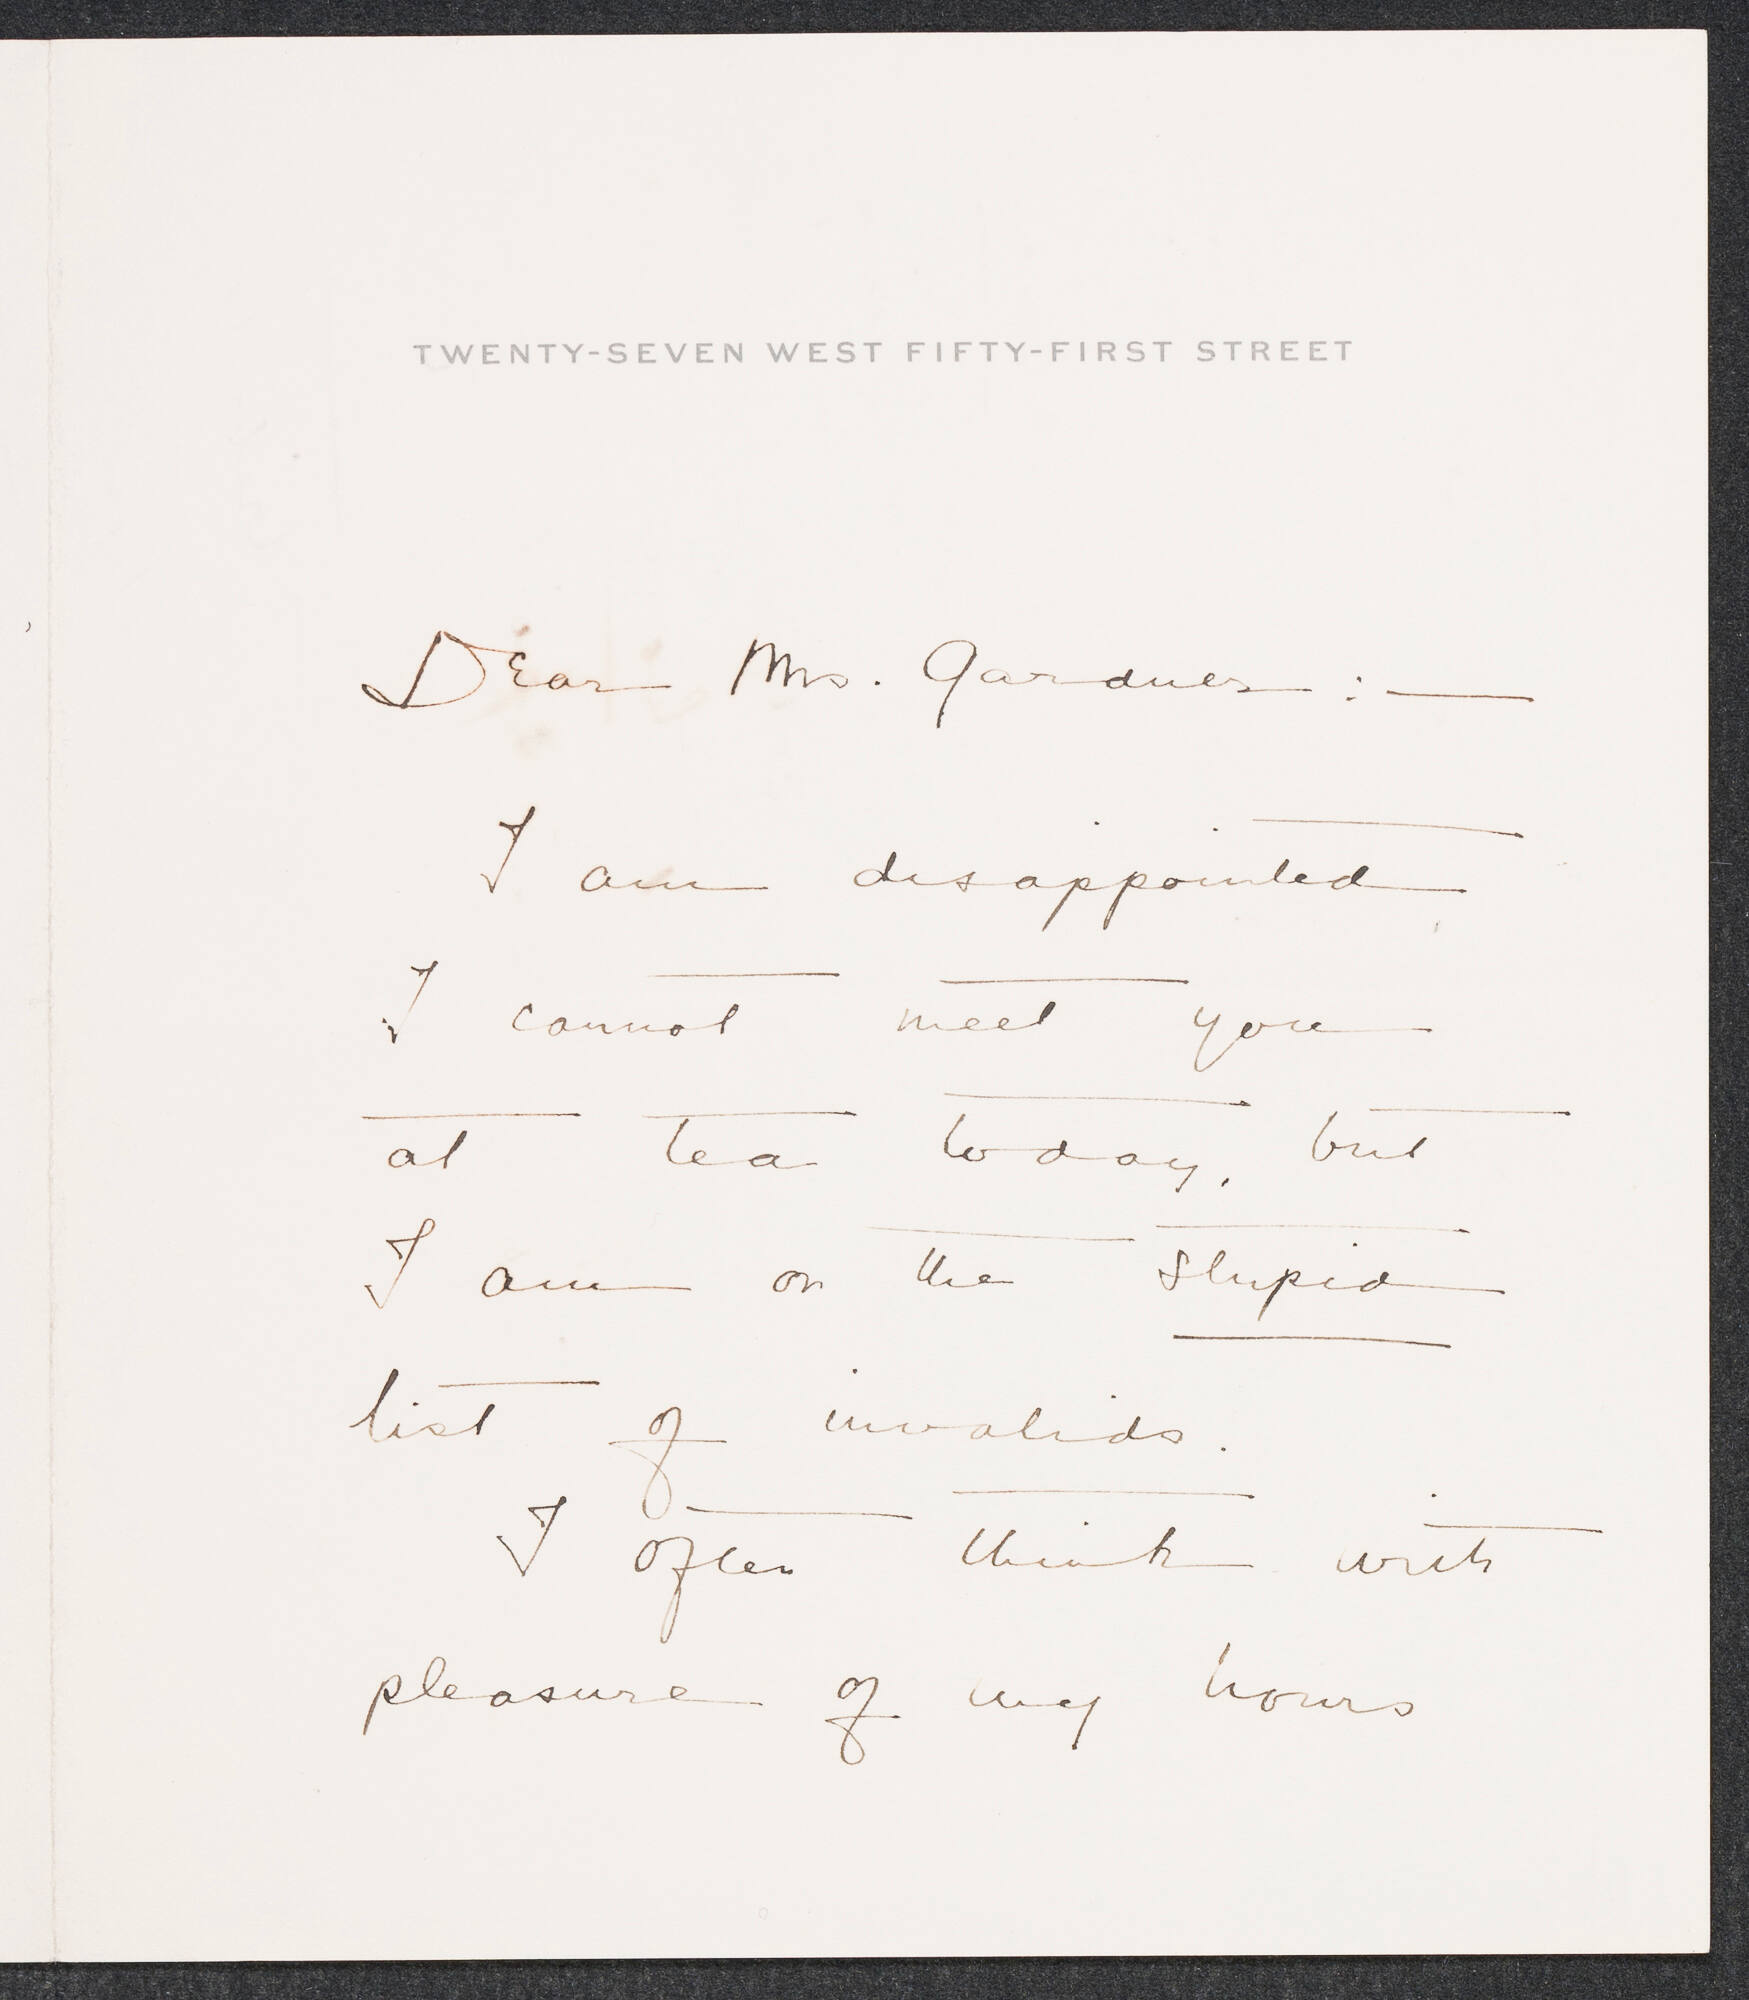 TWENTY-SEVEN WEST FIFTY-FIRST STREET
Dear Mrs. Gardner:—
I am disappointed
I cannot meet you
at tea today, but
I am on the stupid
list of invalids.
I often think with
pleasure of my hours